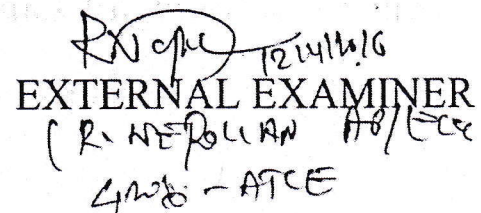 12/4/2016
EXTERNAL EXAMINER
(R. NEPOLIAN AP/ECE
- ATCE